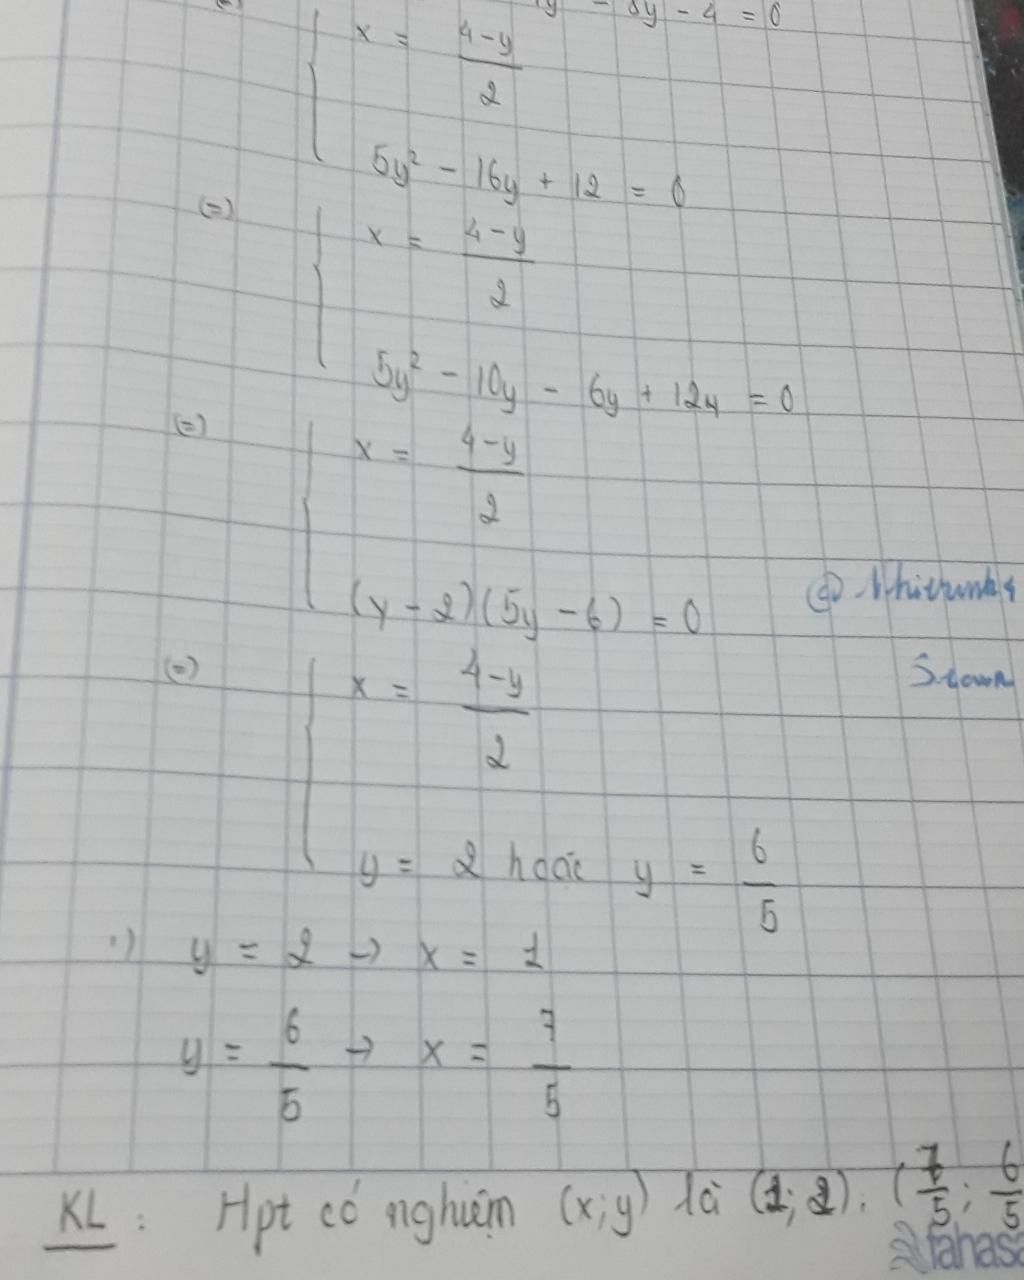 - 8y - 4 = 0
x = \frac{4-y}{2}
5y² - 16y + 12 = 0
(=) x = \frac{4-y}{2}
5y² - 10y - 6y + 12y = 0
(=) x = \frac{4-y}{2}
(y - 2)(5y - 6) = 0
(=) x = \frac{4-y}{2}
y = 2 hoặc y = \frac{6}{5}
y = 2 → x = 1
y = \frac{6}{5} → x = \frac{7}{5}
KL : Hpt có nghiệm (x;y) là (1; 2); (\frac{7}{5}; \frac{6}{5}